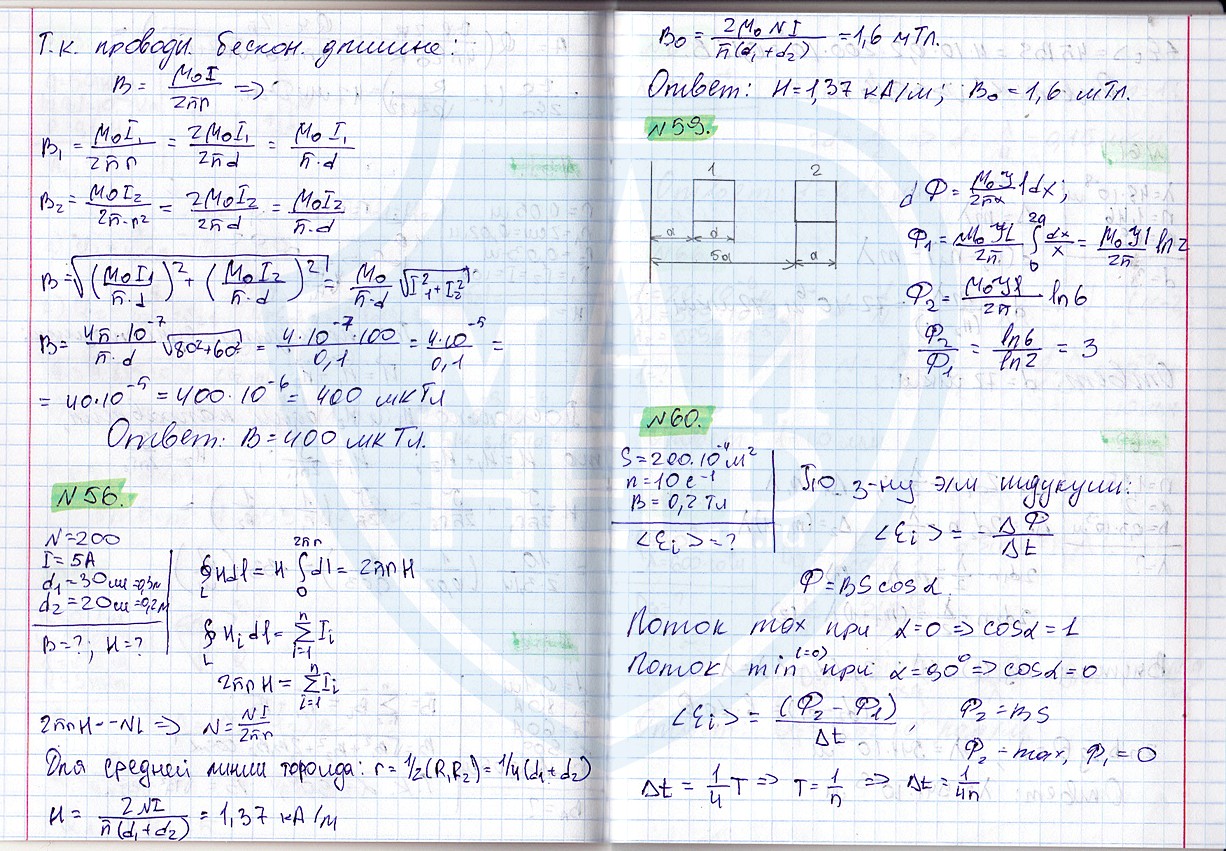 Т.к. проводн. бескон. длинные:
B = μ₀I / 2πr =>
B₁ = μ₀I₁ / 2πr = 2μ₀I₁ / 2πd = μ₀I₁ / π·d
B₂ = μ₀I₂ / 2π·r² = 2μ₀I₂ / 2πd = μ₀I₂ / π·d
B = √((μ₀I₁ / π·d)² + (μ₀I₂ / π·d)²) = μ₀ / π·d √(I²₁ + I²₂)
B = 4π·10⁻⁷ / π·d √(80² + 60²) = 4·10⁻⁷·100 / 0,1 = 4·10⁻⁵ / 0,1 =
= 40·10⁻⁵ = 400·10⁻⁶ = 400 мкТл
Ответ: B = 400 мкТл.
N56.
N = 200
I = 5A
d₁ = 30 см = 0,3м
d₂ = 20 см = 0,2м
B = ?; H = ?
∮L Hdl = H ∫₀^2πr dl = 2πrH
∮L Hᵢdl = Σᵢ₌₁ⁿ Iᵢ
2πrH = Σᵢ₌₁ⁿ Iᵢ
2πrH--NI => N = NI / 2πr
Для средней линии тороида: r = 1/2(R₁R₂) = 1/4(d₁+d₂)
H = 2NI / π(d₁+d₂) = 1,37 кА/м
B₀ = 2μ₀NI / π(d₁+d₂) = 1,6 мТл.
Ответ: H = 1,37 кА/м; B₀ = 1,6 мТл.
N59.
1 2
a d
5a a
dФ = μ₀I / 2πx ldx;
Ф₁ = μ₀Il / 2π ∫₀^2a dx/x = μ₀Il / 2π ln2
Ф₂ = μ₀Il / 2π ln6
Ф₂ / Ф₁ = ln6 / ln2 = 3
N60.
S = 200·10⁻⁴ м²
n = 10 с⁻¹
B = 0,2 Тл
<εᵢ> = ?
По з-ну э/м индукции:
<εᵢ> = -ΔФ / Δt
Ф = BS cosα
Поток max при α=0 => cosα = 1
Поток min (=0) при α=90° => cosα = 0
<εᵢ> = (Ф₂ - Ф₁) / Δt, Ф₂ = BS
Ф₂ - max, Ф₁ = 0
Δt = 1/4 T => T = 1/n => Δt = 1/4n